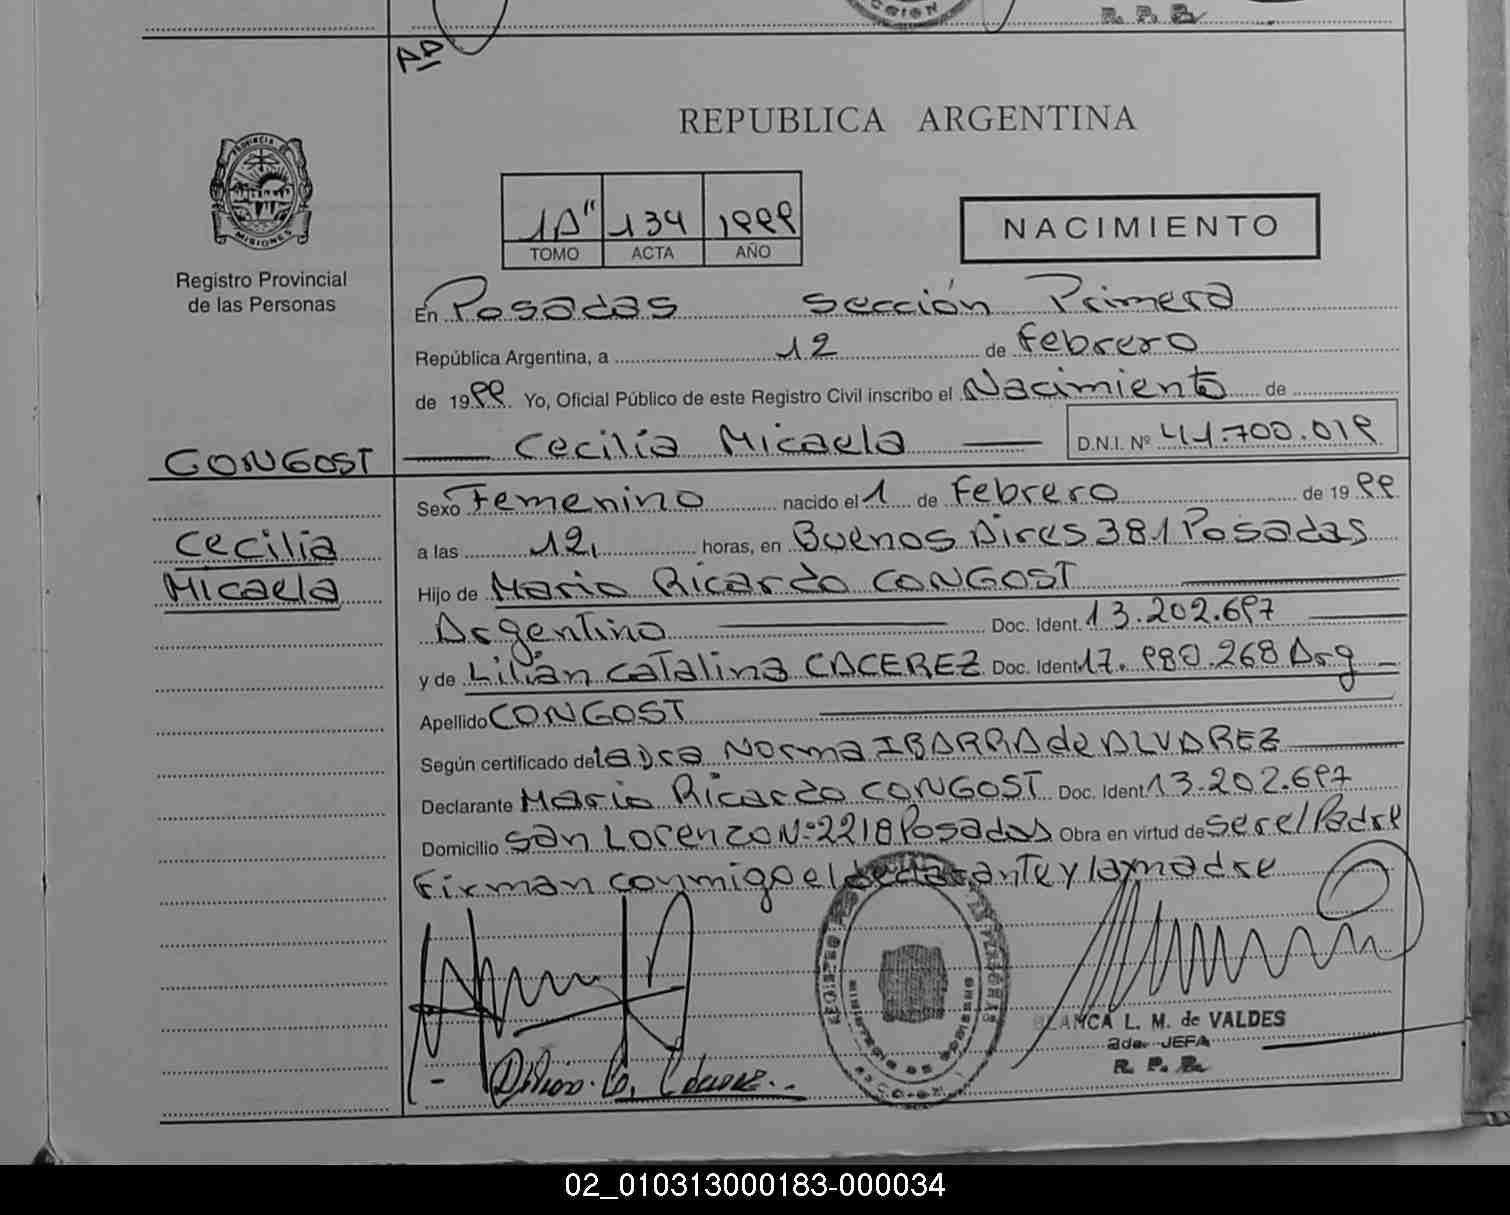 CCION
R. P. P.
AD
REPUBLICA ARGENTINA
PROVINCIA DE
MISIONES
Registro Provincial
de las Personas
1A" 134 1999
TOMO ACTA AÑO
NACIMIENTO
En Posadas Sección Primera
República Argentina, a 12 de Febrero
de 1999 Yo, Oficial Público de este Registro Civil inscribo el Nacimiento de
CONGOST Cecilia Micaela D.N.I. Nº 41.700.019
Sexo Femenino nacido el 1 de Febrero de 1999
Cecilia a las 12, horas, en Buenos Aires 381 Posadas
Micaela Hijo de Mario Ricardo CONGOST
Argentino Doc. Ident. 13.202.697
y de Lilián Catalina CACEREZ Doc. Ident 17.980.268 Arg
Apellido CONGOST
Según certificado de la Dra Norma IBARRA de ALVAREZ
Declarante Mario Ricardo CONGOST Doc. Ident 13.202.697
Domicilio San Lorenzo Nº 2218 Posadas Obra en virtud de ser el Padre
Firman conmigo el declarante y la madre
BLANCA L. M. de VALDES
2da. JEFA
R. P. P.
02_010313000183-000034